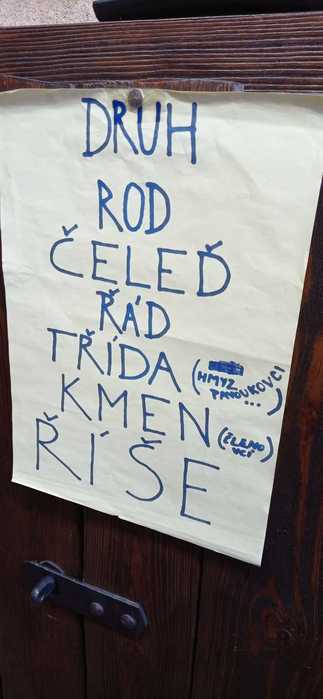 DRUH
ROD
ČELEĎ
ŘÁD
TŘÍDA (HMYZ
PAVOUKOVCI
...)
KMEN (ČLENO
VCI)
ŘÍŠE